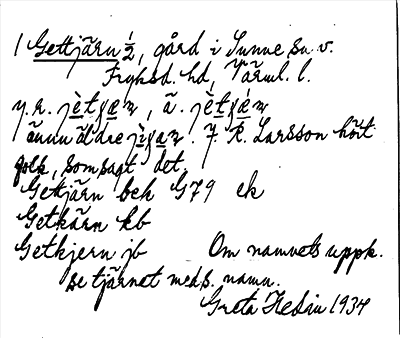 1 Gettjärn ½, gård i Sunne sn. v.
Fryksd. hd, Värml. l.
y. a. jètʃæɳ, ä. jètʃǽɳ
ännu äldre jiʃaɳ. J. R. Larsson hört
folk, som sagt det.
Gettjärn beh G79 ek
Getkärn kb
Getkjern jb Om namnets uppk.
se tjärnet med s. namn.
Greta Hedin 1934